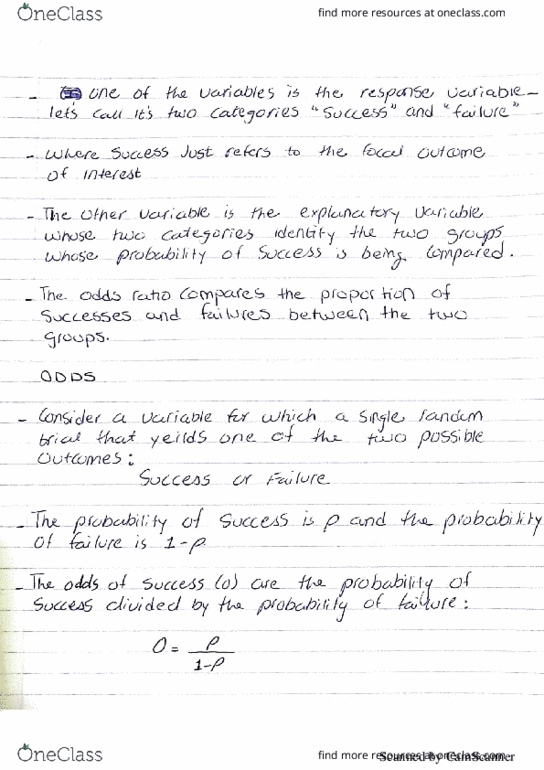 OneClass
find more resources at oneclass.com
- one of the variables is the response variable -
lets call it's two categories "success" and "failure"
- Where success just refers to the focal outcome
of interest
- The other variable is the explanatory variable
whose two categories identity the two groups
whose probability of success is being compared.
- The odds ratio compares the proportion of
successes and failures between the two
groups.
ODDS
- Consider a variable for which a single random
trial that yeilds one of the two possible
outcomes:
Success or Failure
- The probability of success is p and the probability
of failure is 1-p
- The odds of success (o) are the probability of
success divided by the probability of failure:
O = p
1-p
OneClass
find more resources at oneclass.com
Scanned by CamScanner